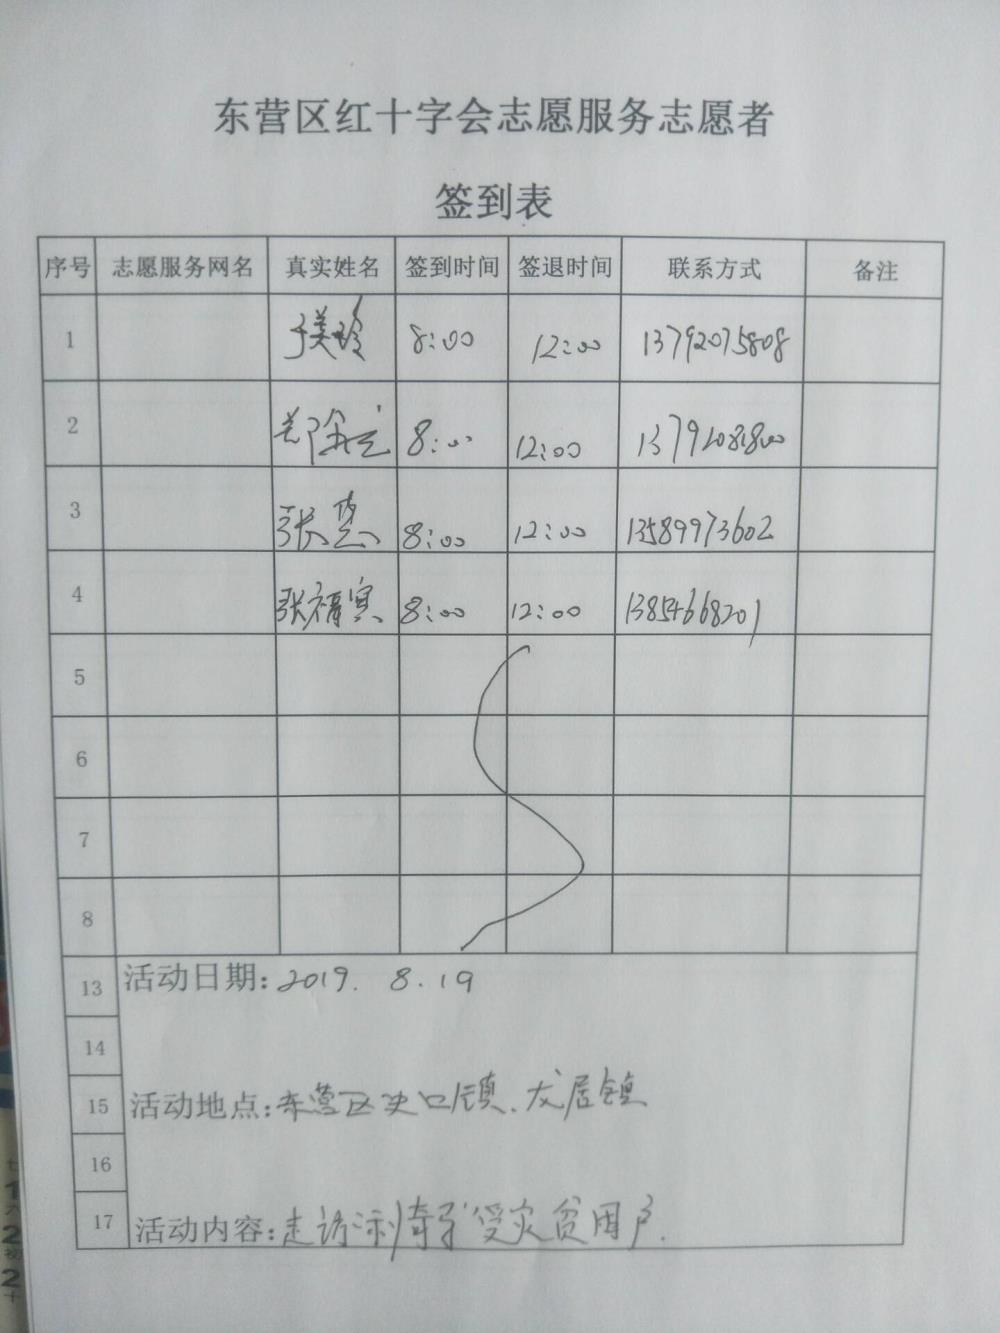 东营区红十字会志愿服务志愿者
签到表
序号 志愿服务网名 真实姓名 签到时间 签退时间 联系方式 备注
1 于美玲 8:00 12:00 13792075808
2 8:00 12:00
3 张慧 8:00 12:00 13589973602
4 张福宾 8:00 12:00 13854668201
5
6
7
8
13 活动日期: 2019. 8. 19
14
15 活动地点: 东营区史口镇、龙居镇
16
17 活动内容: 走访 受灾贫困户.